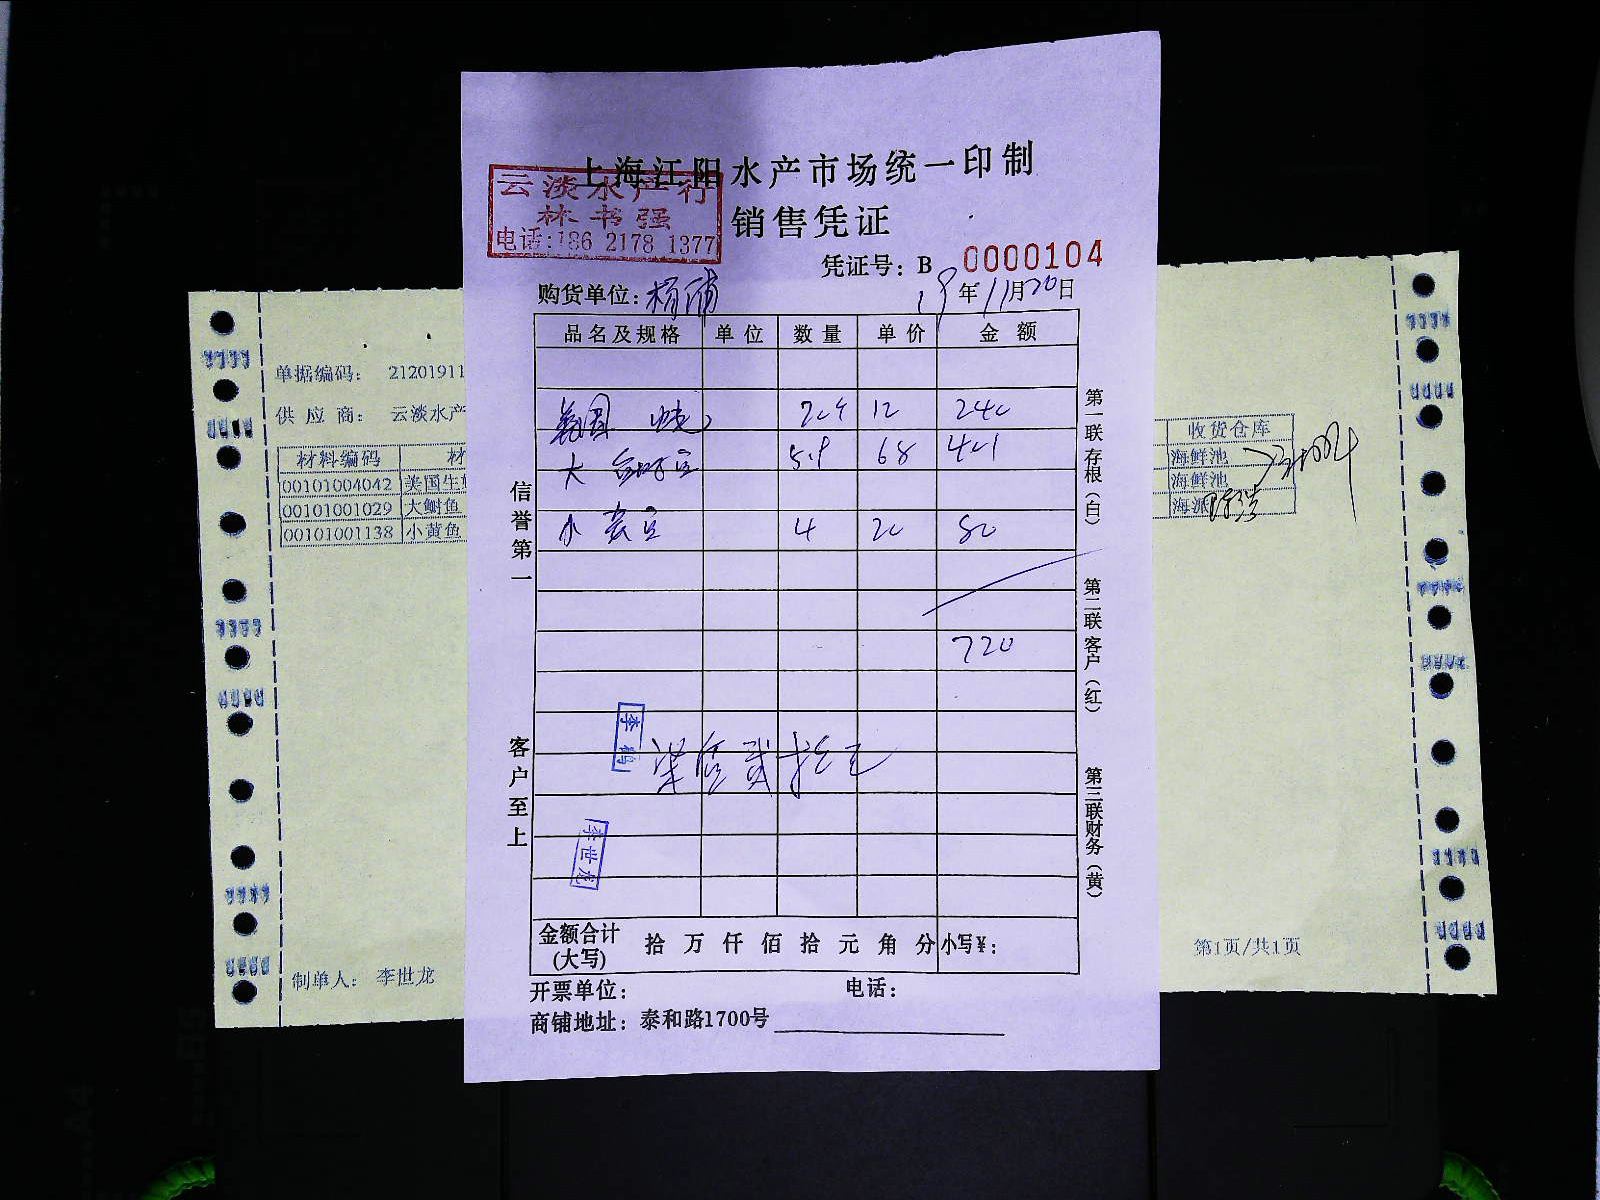 上海江阳水产市场统一印制
云淡水产行
林书强
电话:186 2178 1377
销售凭证
凭证号：B 0000104
购货单位：杨浦 19年11月20日
品名及规格 单位 数量 单价 金额
美国 12 240
大 5.9 68 401
小黄鱼 4 20 80
720
柒佰贰拾元
李世龙
金额合计(大写) 拾 万 仟 佰 拾 元 角 分 小写¥：
开票单位： 电话：
商铺地址：泰和路1700号
信誉第一
客户至上
第一联存根（白）
第二联客户（红）
第三联财务（黄）
单据编码： 21201911
供 应 商： 云淡水产
材料编码 材
00101004042 美国生
00101001029 大鲥鱼
00101001138 小黄鱼
制单人： 李世龙
收货仓库
海鲜池
海鲜池
海派
第1页/共1页